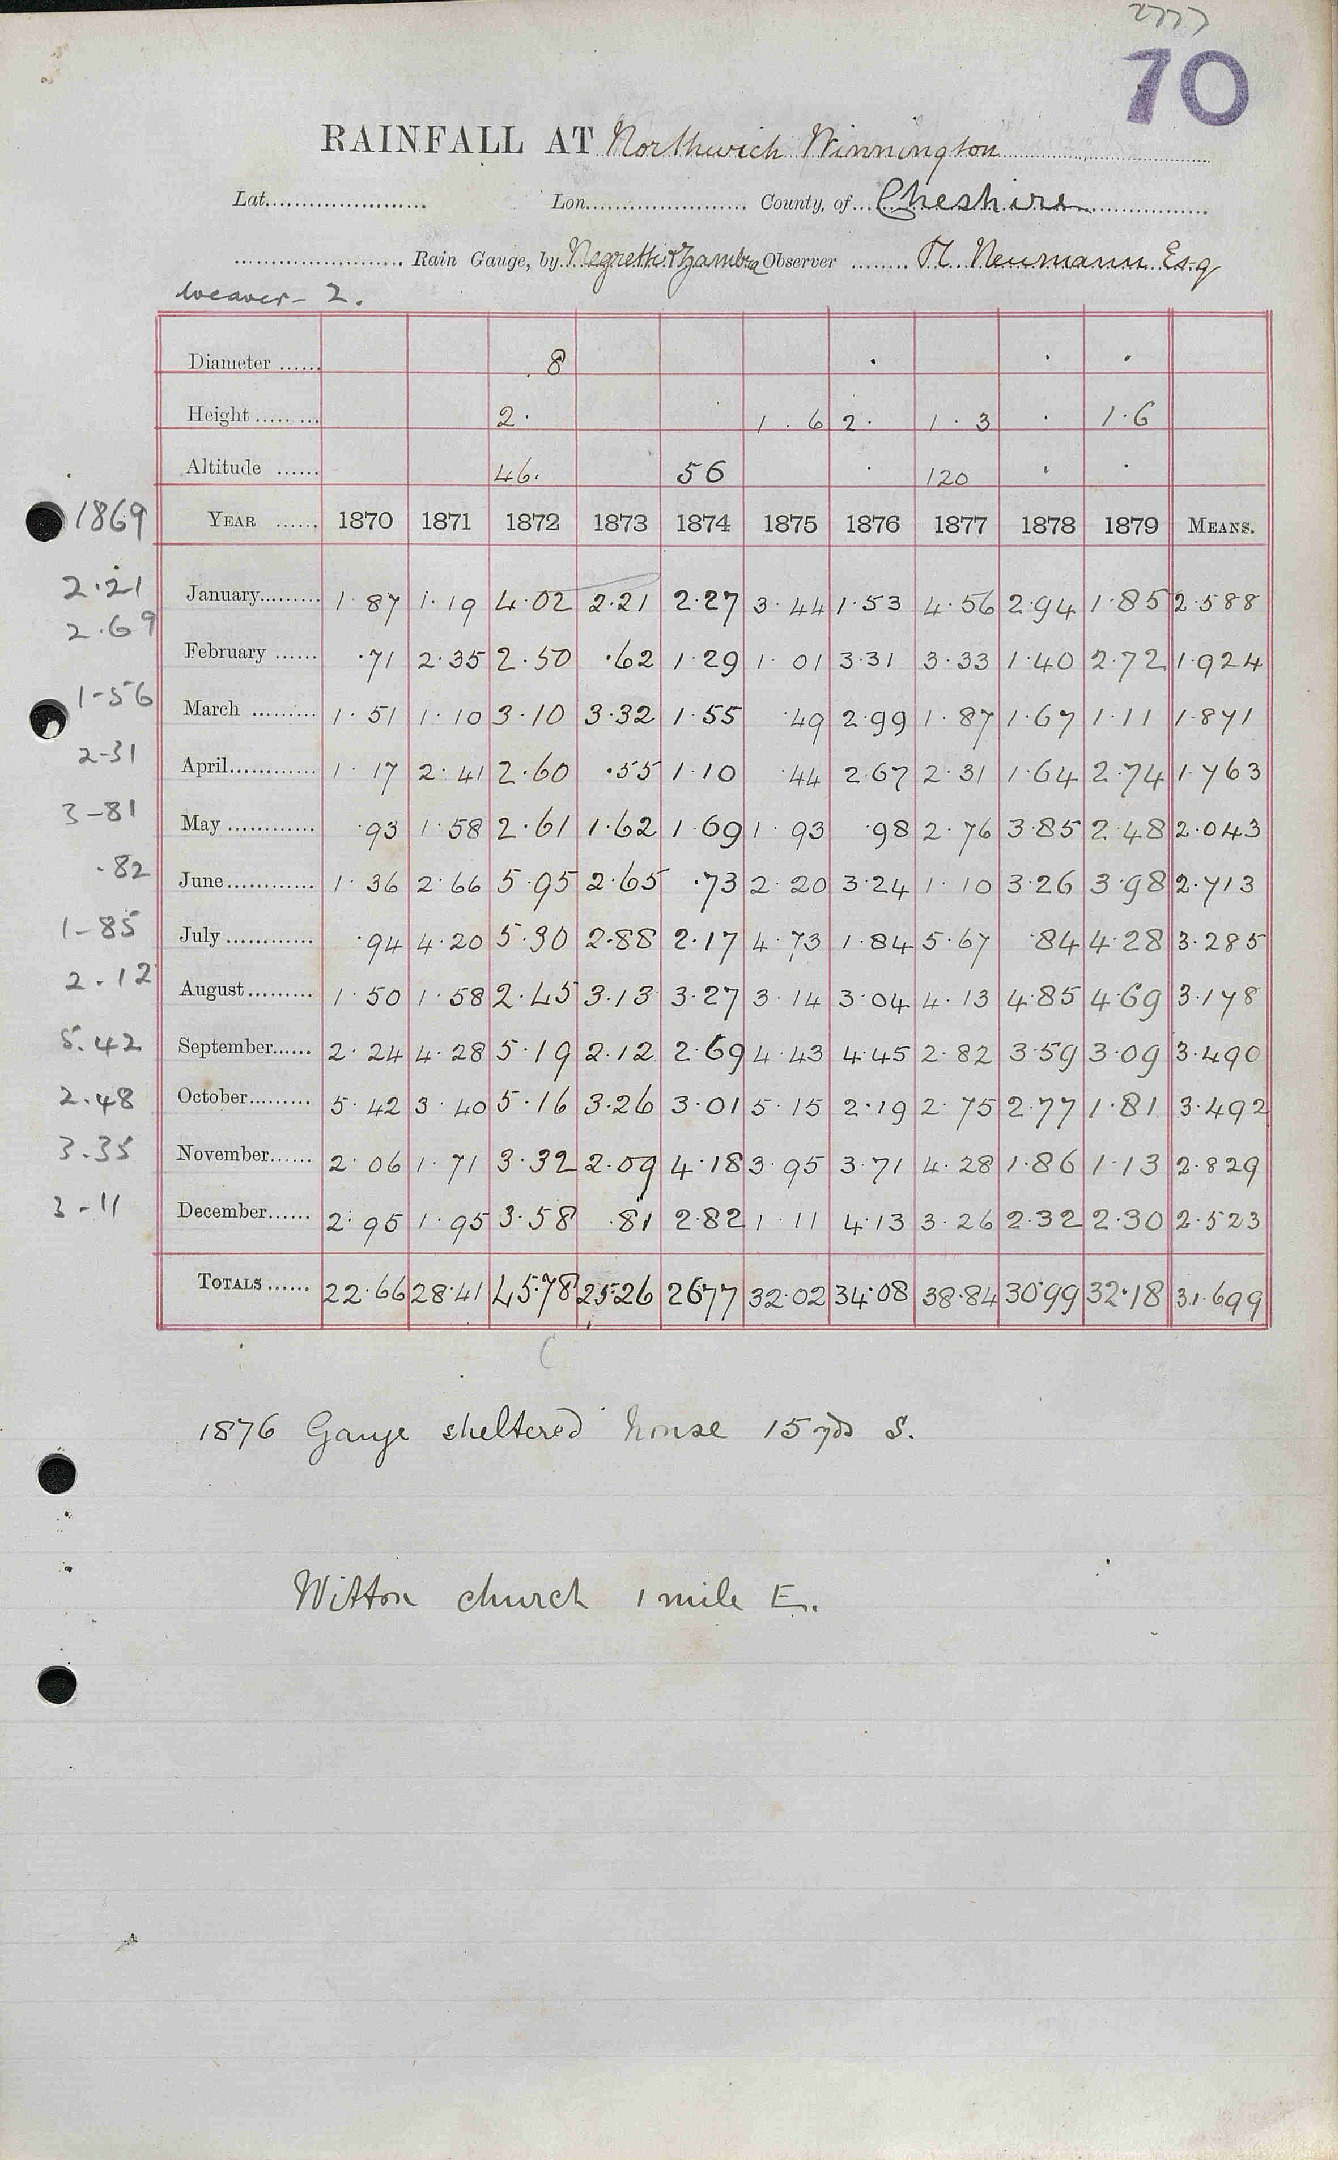 2777
70
RAINFALL AT Northwich Winnington
Lat. Lon. County of Cheshire
Rain Gauge, by Negretti & Zambra Observer Neumann Esq
Weaver - 2.
Diameter 8 . . .
Height 2. 1.6 2. 1.3 . 1.6
Altitude 46. 56 . 120 . .
1869 YEAR 1870 1871 1872 1873 1874 1875 1876 1877 1878 1879 MEANS.
2.21 January 1.87 1.19 4.02 2.21 2.27 3.44 1.53 4.56 2.94 1.85 2.588
2.69 February .71 2.35 2.50 .62 1.29 1.01 3.31 3.33 1.40 2.72 1.924
1-56 March 1.51 1.10 3.10 3.32 1.55 .49 2.99 1.87 1.67 1.11 1.871
2-31 April 1.17 2.41 2.60 .55 1.10 .44 2.67 2.31 1.64 2.74 1.763
3-81 May .93 1.58 2.61 1.62 1.69 1.93 .98 2.76 3.85 2.48 2.043
.82 June 1.36 2.66 5.95 2.65 .73 2.20 3.24 1.10 3.26 3.98 2.713
1-85 July .94 4.20 5.30 2.88 2.17 4.73 1.84 5.67 .84 4.28 3.285
2.12 August 1.50 1.58 2.45 3.13 3.27 3.14 3.04 4.13 4.85 4.69 3.178
5.42 September 2.24 4.28 5.19 2.12 2.69 4.43 4.45 2.82 3.59 3.09 3.490
2.48 October 5.42 3.40 5.16 3.26 3.01 5.15 2.19 2.75 2.77 1.81 3.492
3.35 November 2.06 1.71 3.32 2.09 4.18 3.95 3.71 4.28 1.86 1.13 2.829
3-11 December 2.95 1.95 3.58 .81 2.82 1.11 4.13 3.26 2.32 2.30 2.523
TOTALS 22.66 28.41 45.78 25.26 26.77 32.02 34.08 38.84 30.99 32.18 31.699
1876 Gauge sheltered house 15 yds S.
Witton church 1 mile E.